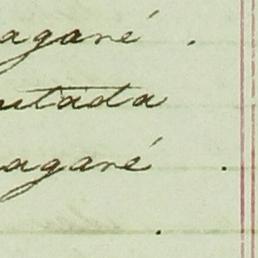 agaré .
utada
agaré .
.